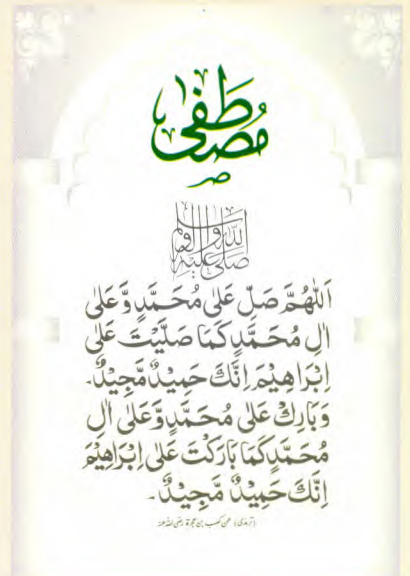 مُصطَفٰی
ؐ
صَلَّى اللهُ عَلَيْهِ وَآلِهِ وَسَلَّم
اَللّٰهُمَّ صَلِّ عَلٰی مُحَمَّدٍ وَّعَلٰی
اٰلِ مُحَمَّدٍ كَمَا صَلَّيْتَ عَلٰی
اِبْرَاهِيْمَ اِنَّكَ حَمِيْدٌ مَّجِيْدٌ۔
وَبَارِكْ عَلٰی مُحَمَّدٍ وَّعَلٰی اٰلِ
مُحَمَّدٍ كَمَا بَارَكْتَ عَلٰی اِبْرَاهِيْمَ
اِنَّكَ حَمِيْدٌ مَّجِيْدٌ۔
(ترمذی) عن کعب بن عجرة رضی اللہ عنہ